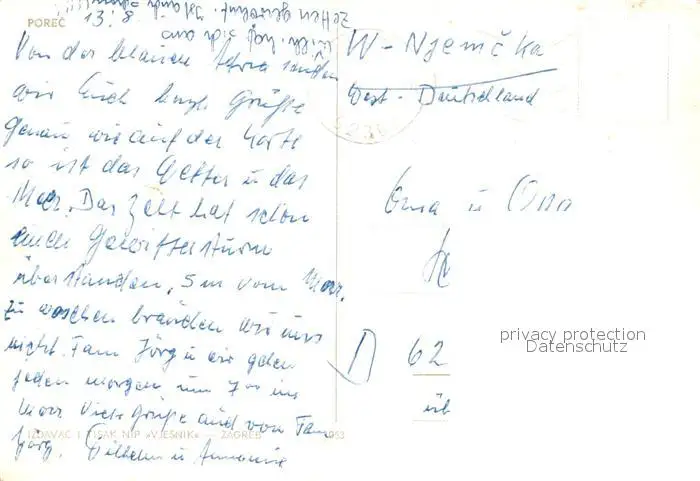 POREČ 13.8
Von der blauen Adria senden
wir Euch herzl. Grüße
Genau wie auf der Karte
so ist das Wetter u das
Meer. Das Zelt hat schon
einen Gewittersturm
überstanden, 5 m vom Meer.
Zu waschen bräuchten wir uns
nicht. Fam Jörg u wir gehen
jeden morgen um 7 ins
Meer Viele Grüße auch von Fam
Jörg. Wilhelm u
IZDAVAČ I TISAK NIP »VJESNIK« - ZAGREB
W - Njemčka
West - Deutschland
Oma u Opa
D 62
privacy protection
Datenschutz